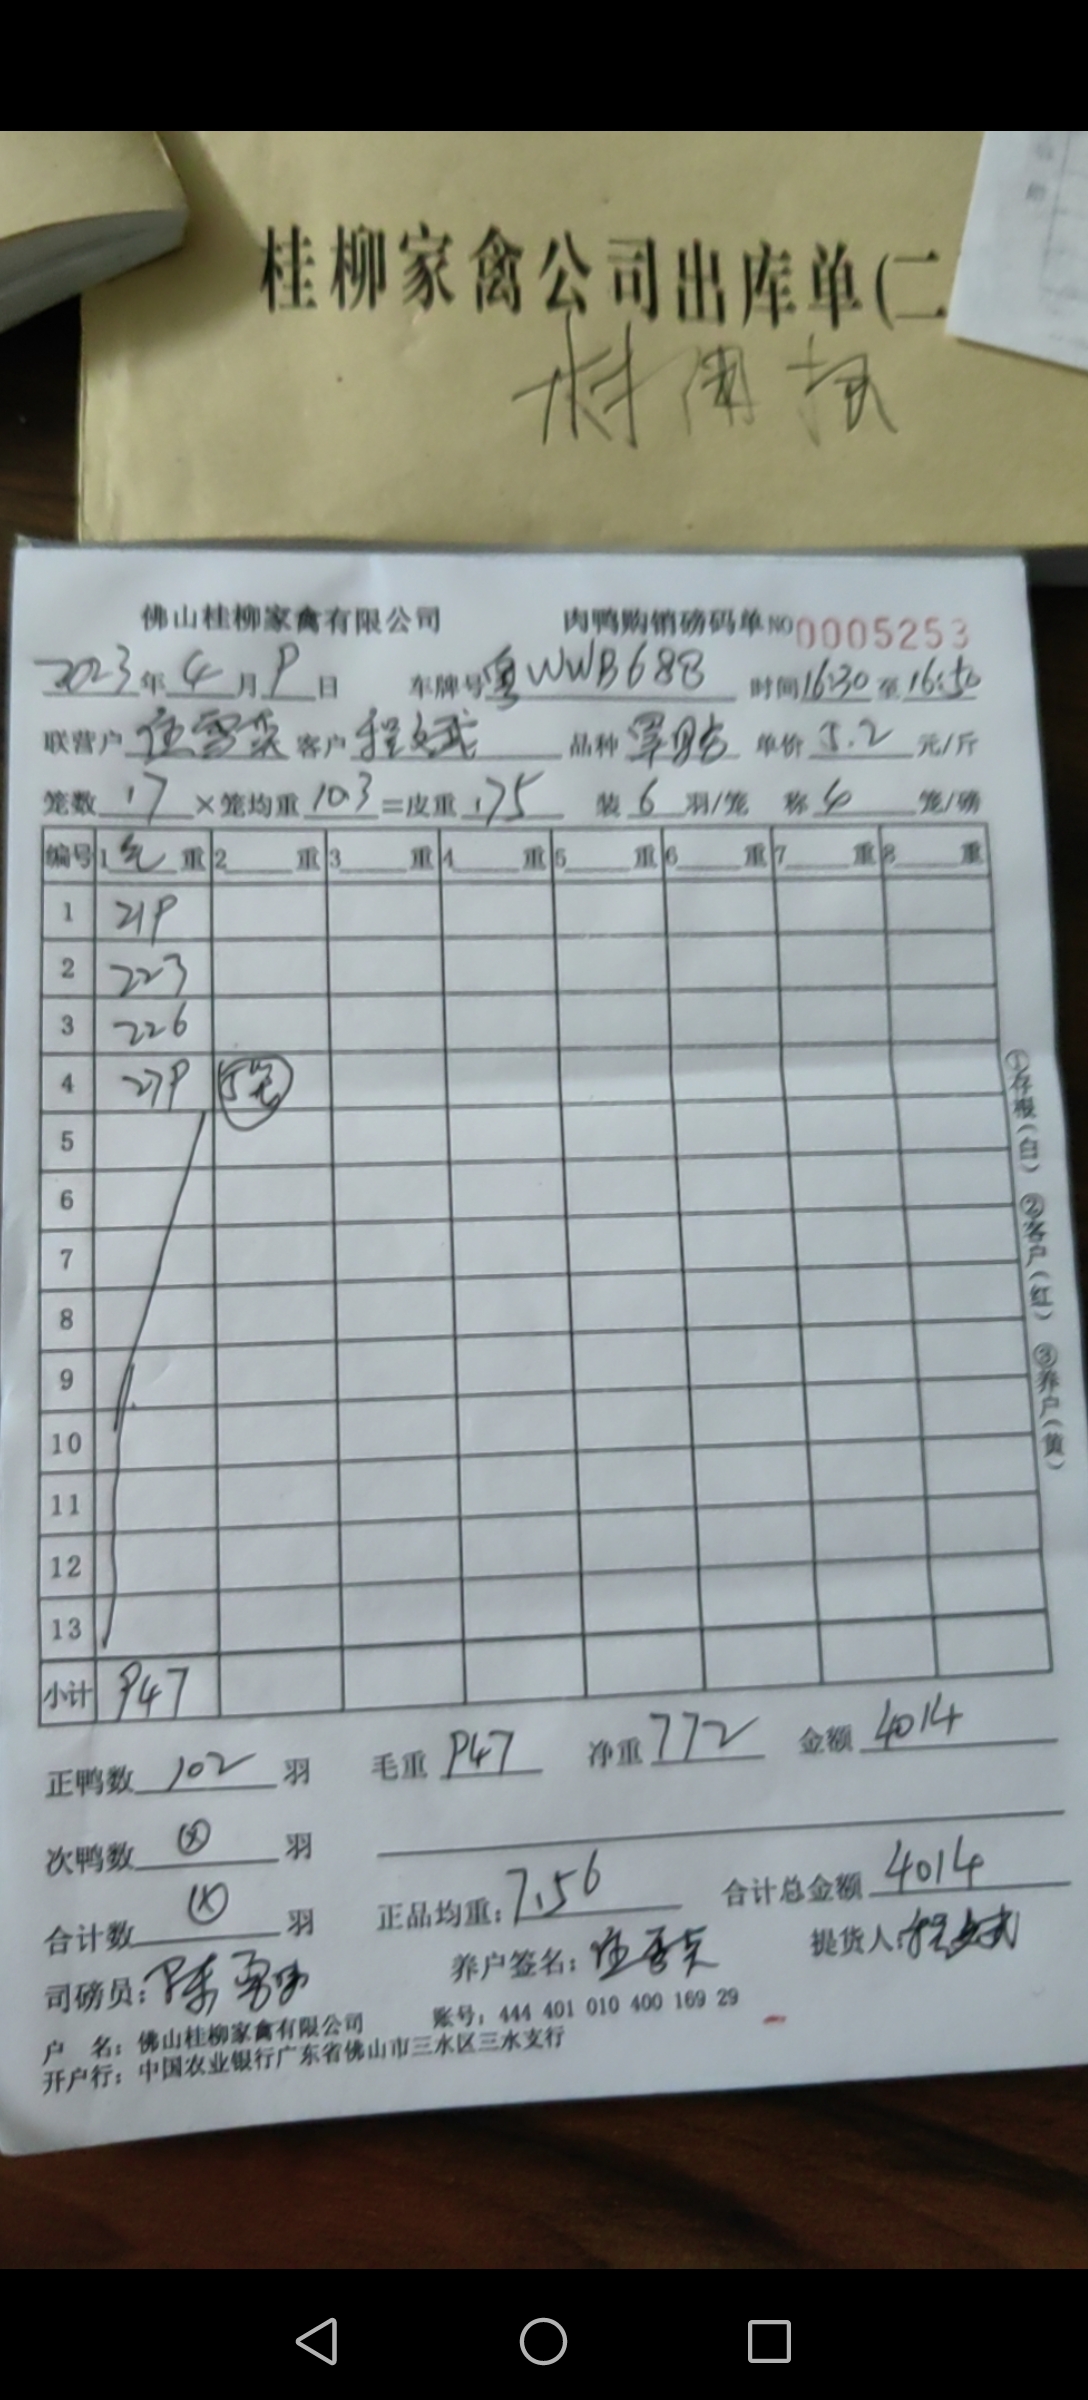 桂柳家禽公司出库单(二
佛山桂柳家禽有限公司 肉鸭购销磅码单 NO 0005253
2023年4月9日 车牌号粤WWB688 时间16:30至16:50
联营户 客户程文武 品种 单价5.2元/斤
笼数17×笼均重10.3=皮重175 装6羽/笼 称4笼/磅
编号 1毛重 2重 3重 4重 5重 6重 7重 8重
1 219
2 223
3 226
4 279 5笼
5
6
7
8
9
10
11
12
13
小计 947
正鸭数102羽 毛重947 净重772 金额4014
次鸭数羽
合计数羽 正品均重:7.56 合计总金额4014
司磅员:陈 养户签名: 提货人:程文武
户 名:佛山桂柳家禽有限公司 账号:444 401 010 400 169 29
开户行:中国农业银行广东省佛山市三水区三水支行
①存根(白) ②客户(红) ③养户(黄)